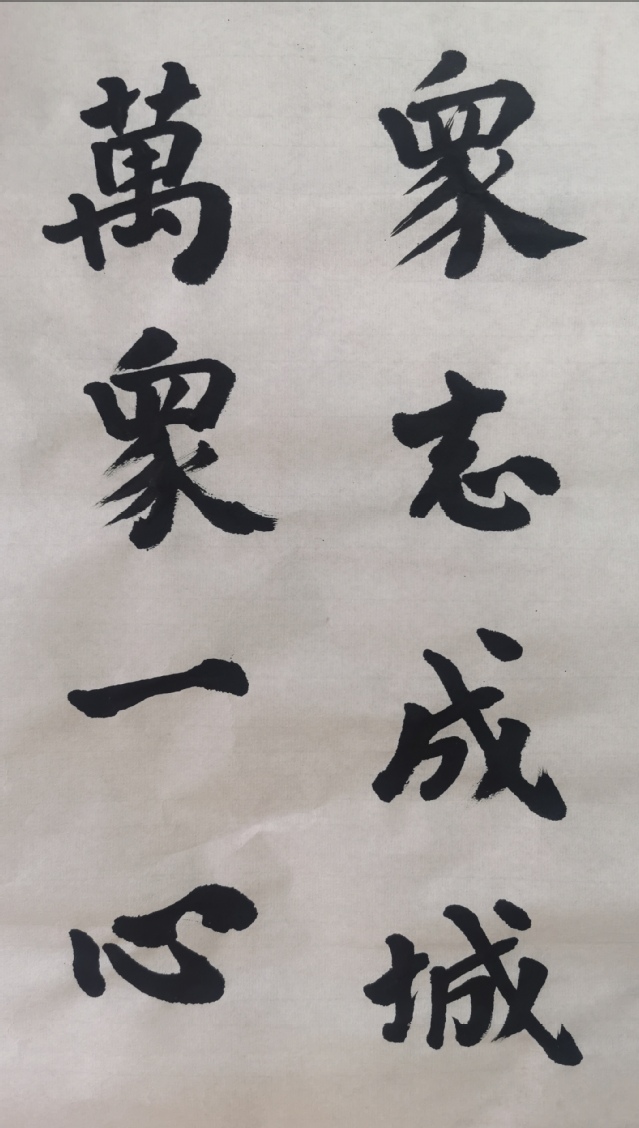 眾志成城
萬眾一心